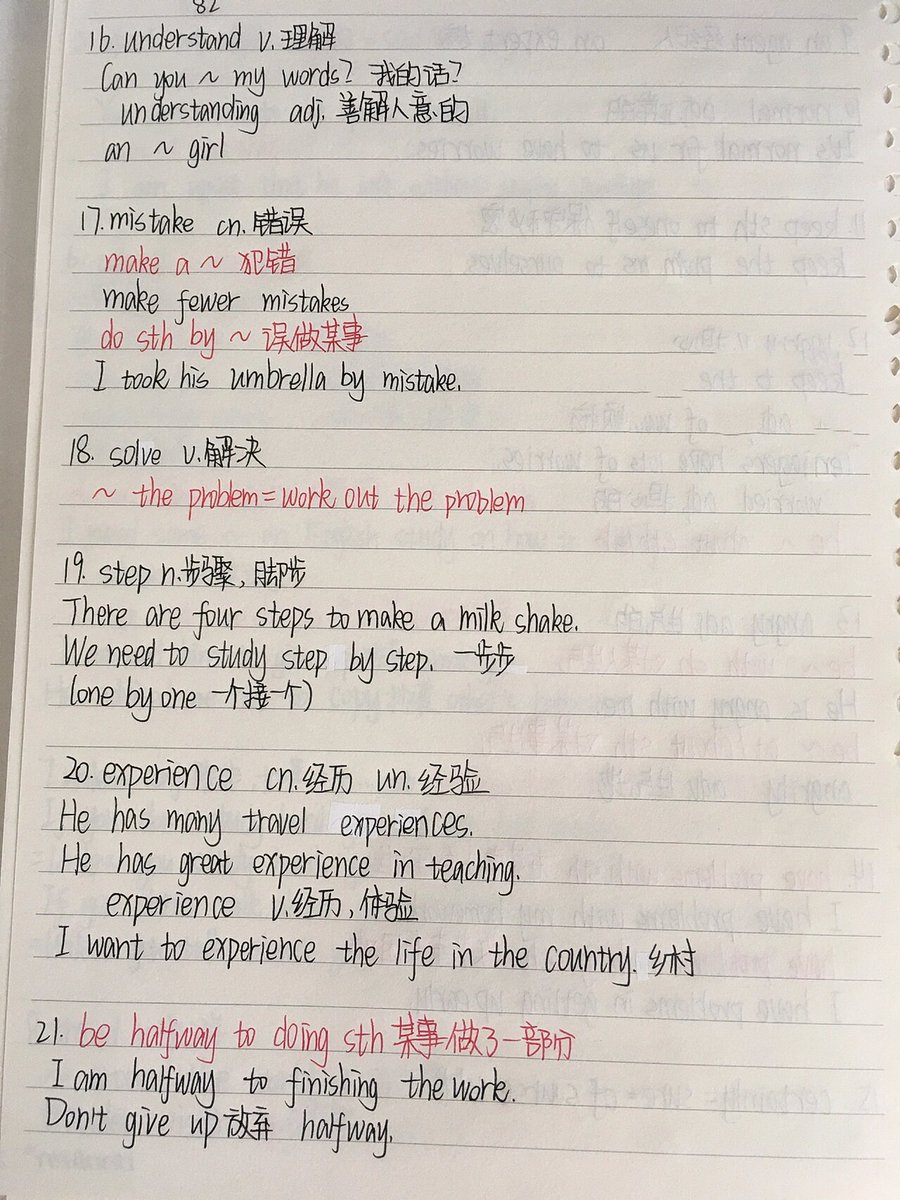 82
16. understand v.理解
Can you ~ my words? 我的话?
understanding adj. 善解人意的
an ~ girl
17. mistake cn. 错误
make a ~ 犯错
make fewer mistakes
do sth by ~ 误做某事
I took his umbrella by mistake.
18. solve v.解决
~ the problem = work out the problem
19. step n.步骤, 脚步
There are four steps to make a milk shake.
We need to study step by step. 一步步
(one by one 一个接一个)
20. experience cn.经历 un.经验
He has many travel experiences.
He has great experience in teaching.
experience v.经历, 体验
I want to experience the life in the country. 乡村
21. be halfway to doing sth 某事做了一部分
I am halfway to finishing the work.
Don't give up 放弃 halfway.